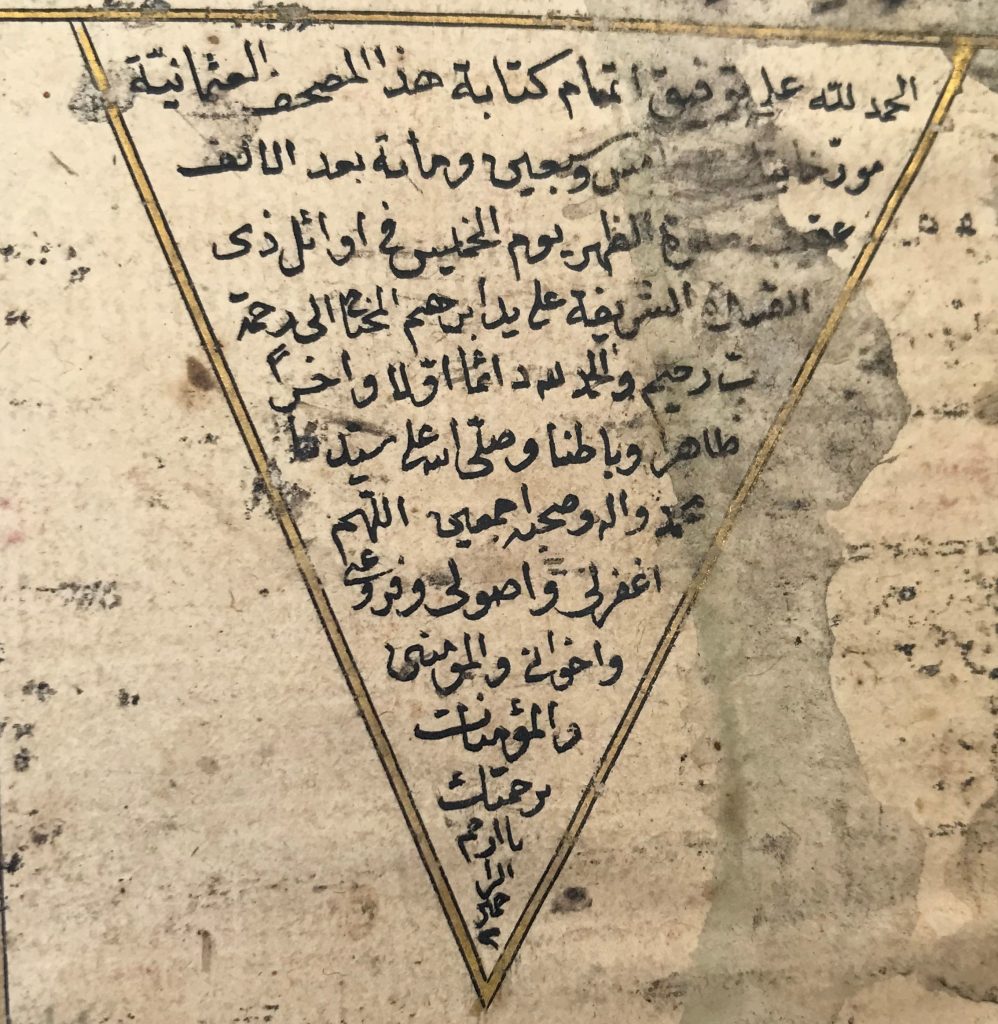 الحمد لله على توفيق اتمام كتابة هذا المصحف العثمانيّة
مورّخا وتسعين ومأية بعد الالف
الظهر يوم الخميس في اوائل ذى
الشريفة على يد ابرهيم المحتاج الى رحمة
ربّ رحيم والحمد لله دائما اوّلا واخراً
ظاهرا وباطنا وصلّى الله على سيّدنا
محمد واله وصحبه اجمعين اللّهم
اغفرلى واصولى وفروعى
واخوانى والمؤمنين
والمؤمنات
برحمتك
يا ارحم
الر
حمين